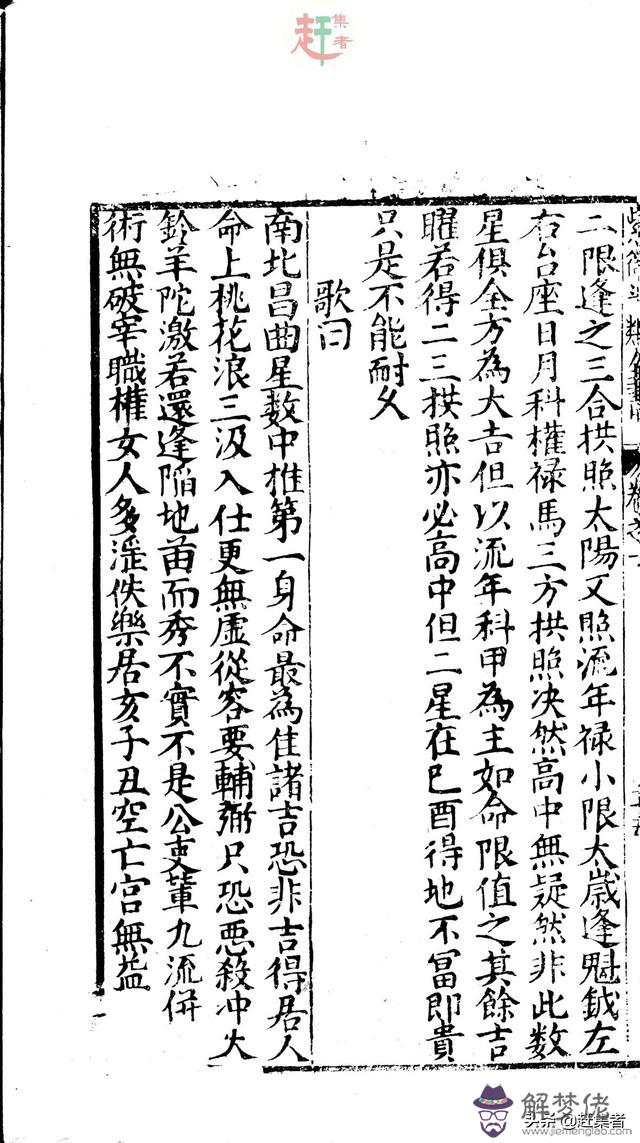 赶集者
二限逢之三合拱照太陽又照流年禄小限太歲逢魁鉞左
右台座日月科權禄馬三方拱照决然高中無疑然非此数
星俱全方為大吉但以流年科甲為主如命限值之其餘吉
曜若得二三拱照亦必高中但二星在巳酉得地不冨即貴
只是不能耐久
歌曰
南北昌曲星数中推第一身命最為佳諸吉恐非吉得居人
命上桃花浪三汲入仕更無虚從容要輔弼只恐惡殺冲火
鈴羊陀激若還逢陷地苗而秀不實不是公吏輩九流併
術無破宰職權女人多淫佚樂居亥子丑空亡宮無益
解梦佬
头条 @赶集者
www.jiemenglab.com